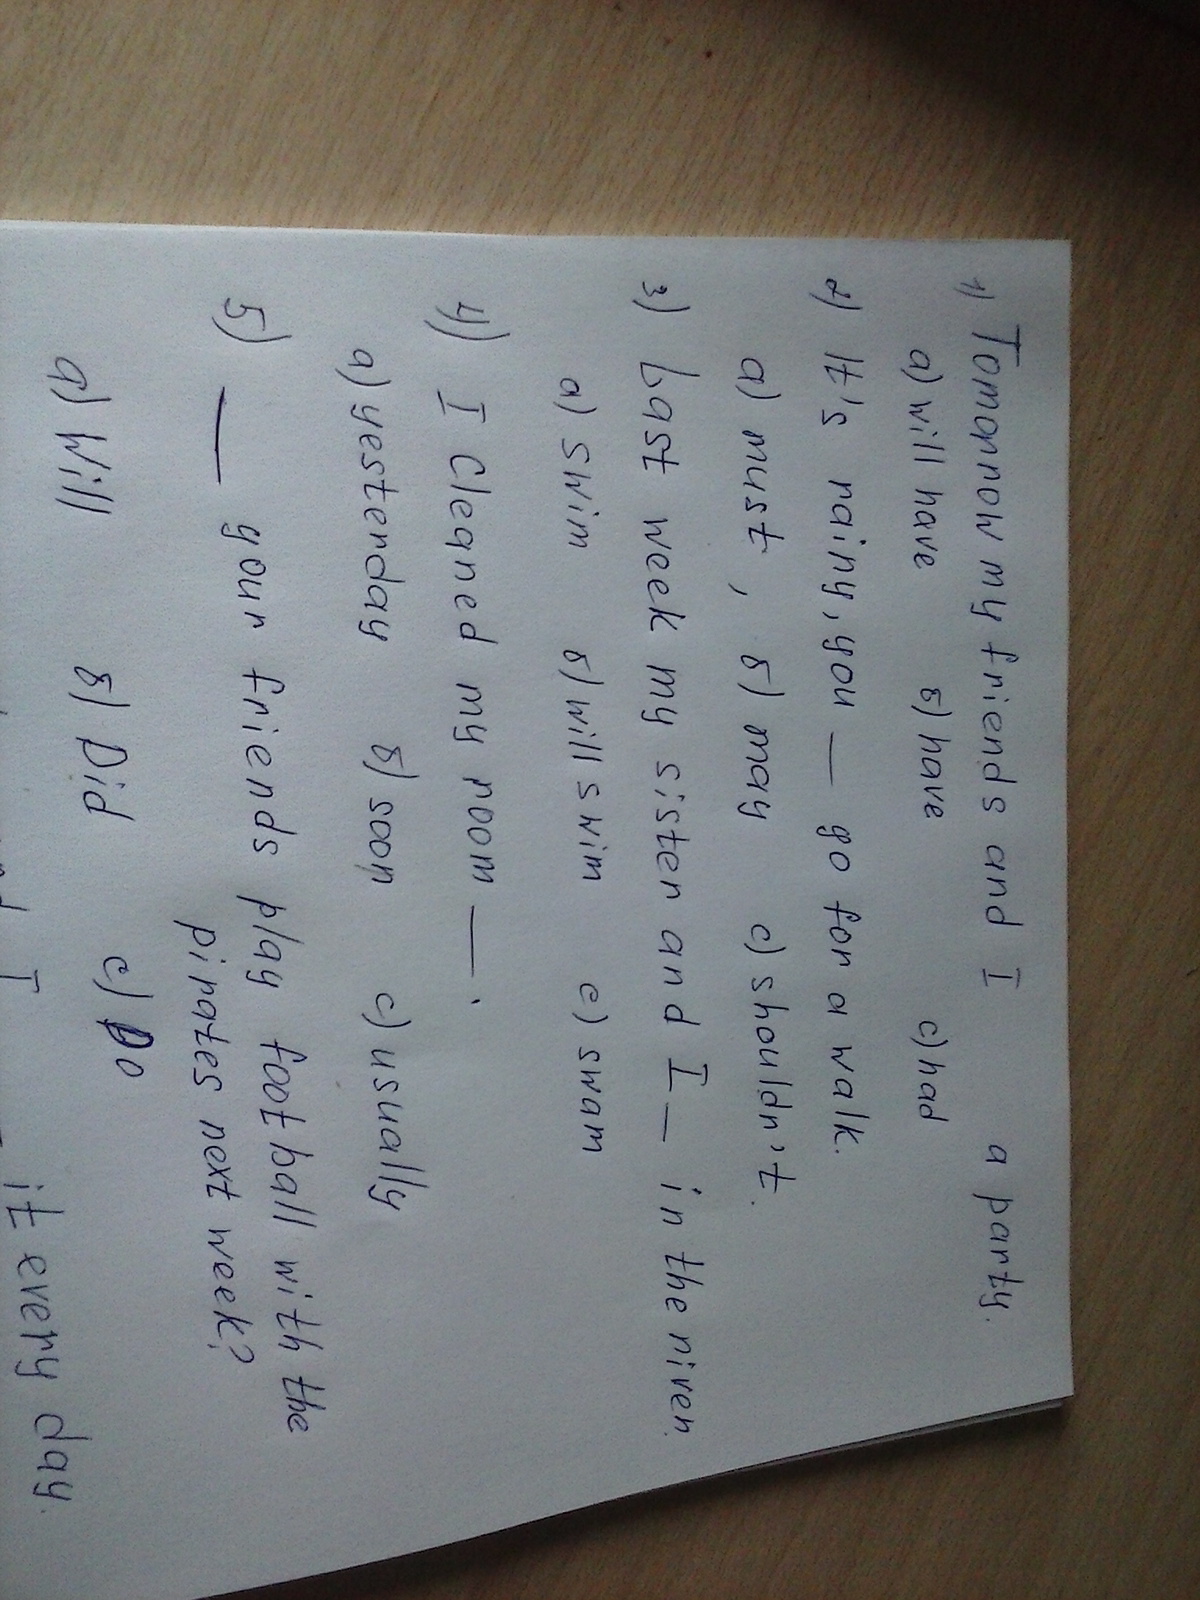 1) Tomorrow my friends and I a party.
a) will have б) have c) had
2) It's rainy, you — go for a walk.
a) must, б) may c) shouldn't.
3) Last week my sister and I — in the river
a) swim б) will swim c) swam
4) I cleaned my room —.
a) yesterday б) soon c) usually
5) — your friends play football with the
pirates next week?
a) Will б) Did c) Do
I — it every day.